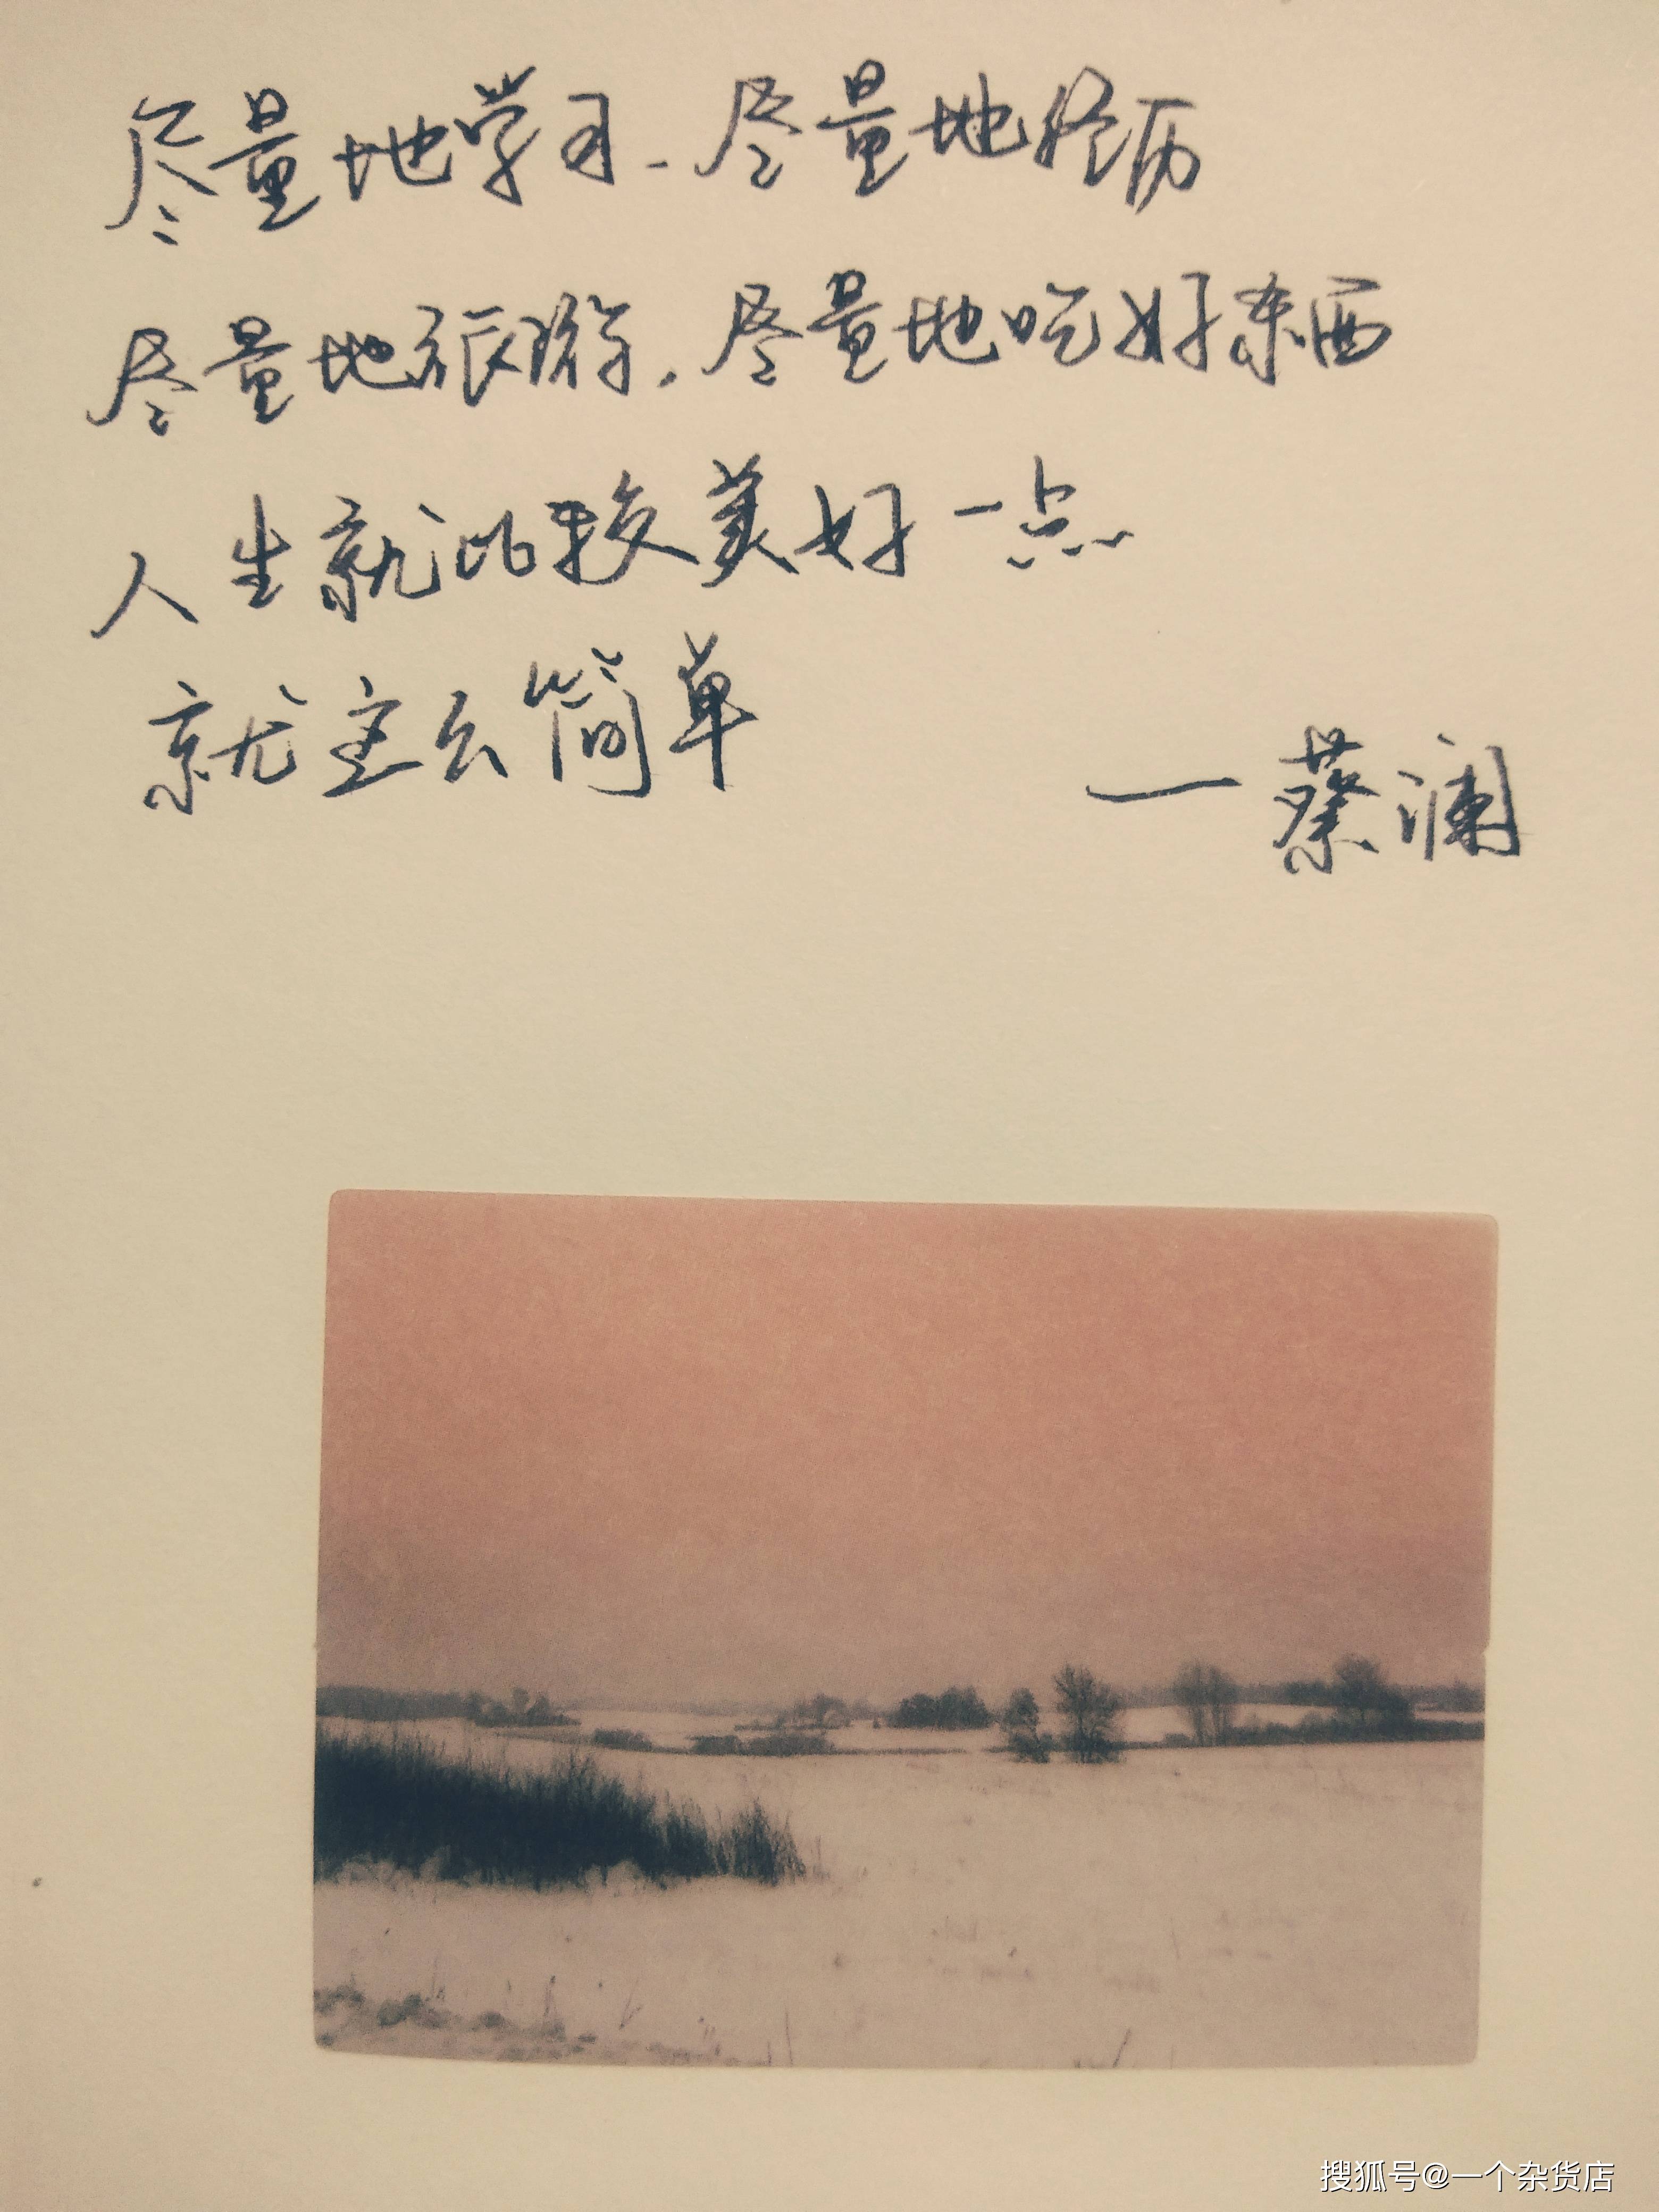 尽量地学习、尽量地经历
尽量地旅游、尽量地吃好东西
人生就比较美好一点
就这么简单
一蔡澜
搜狐号@一个杂货店